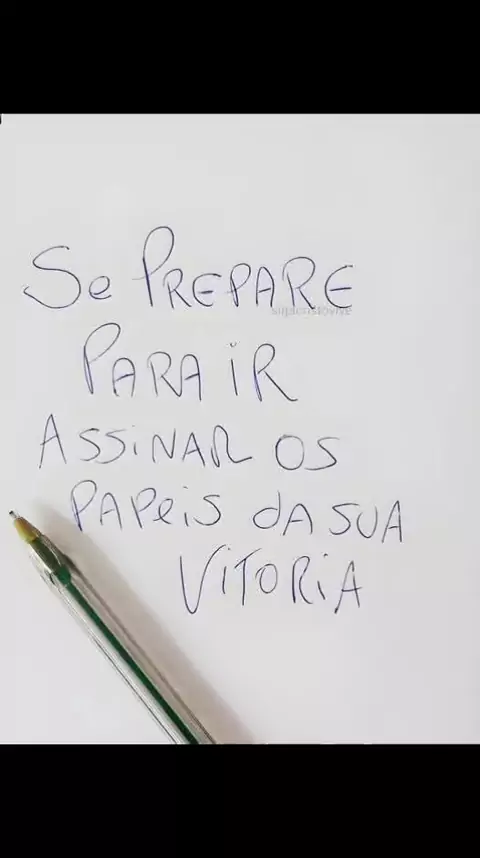 Se PREPARE
PARA iR
ASSiNAR OS
PAPeiS dA SUA
ViTORiA